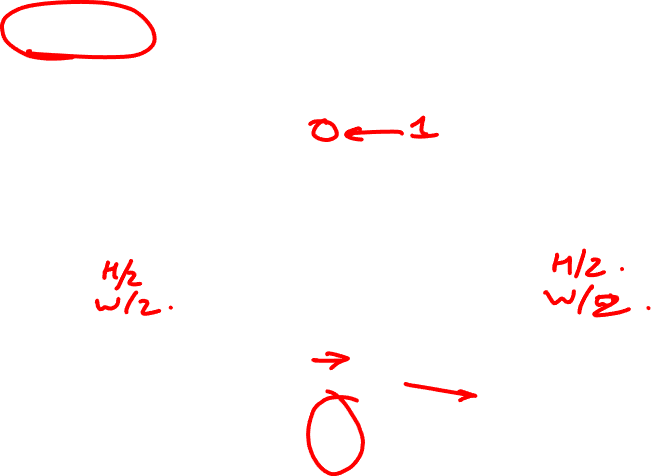 0 ← 1
H/2
W/2.
H/2.
W/2.